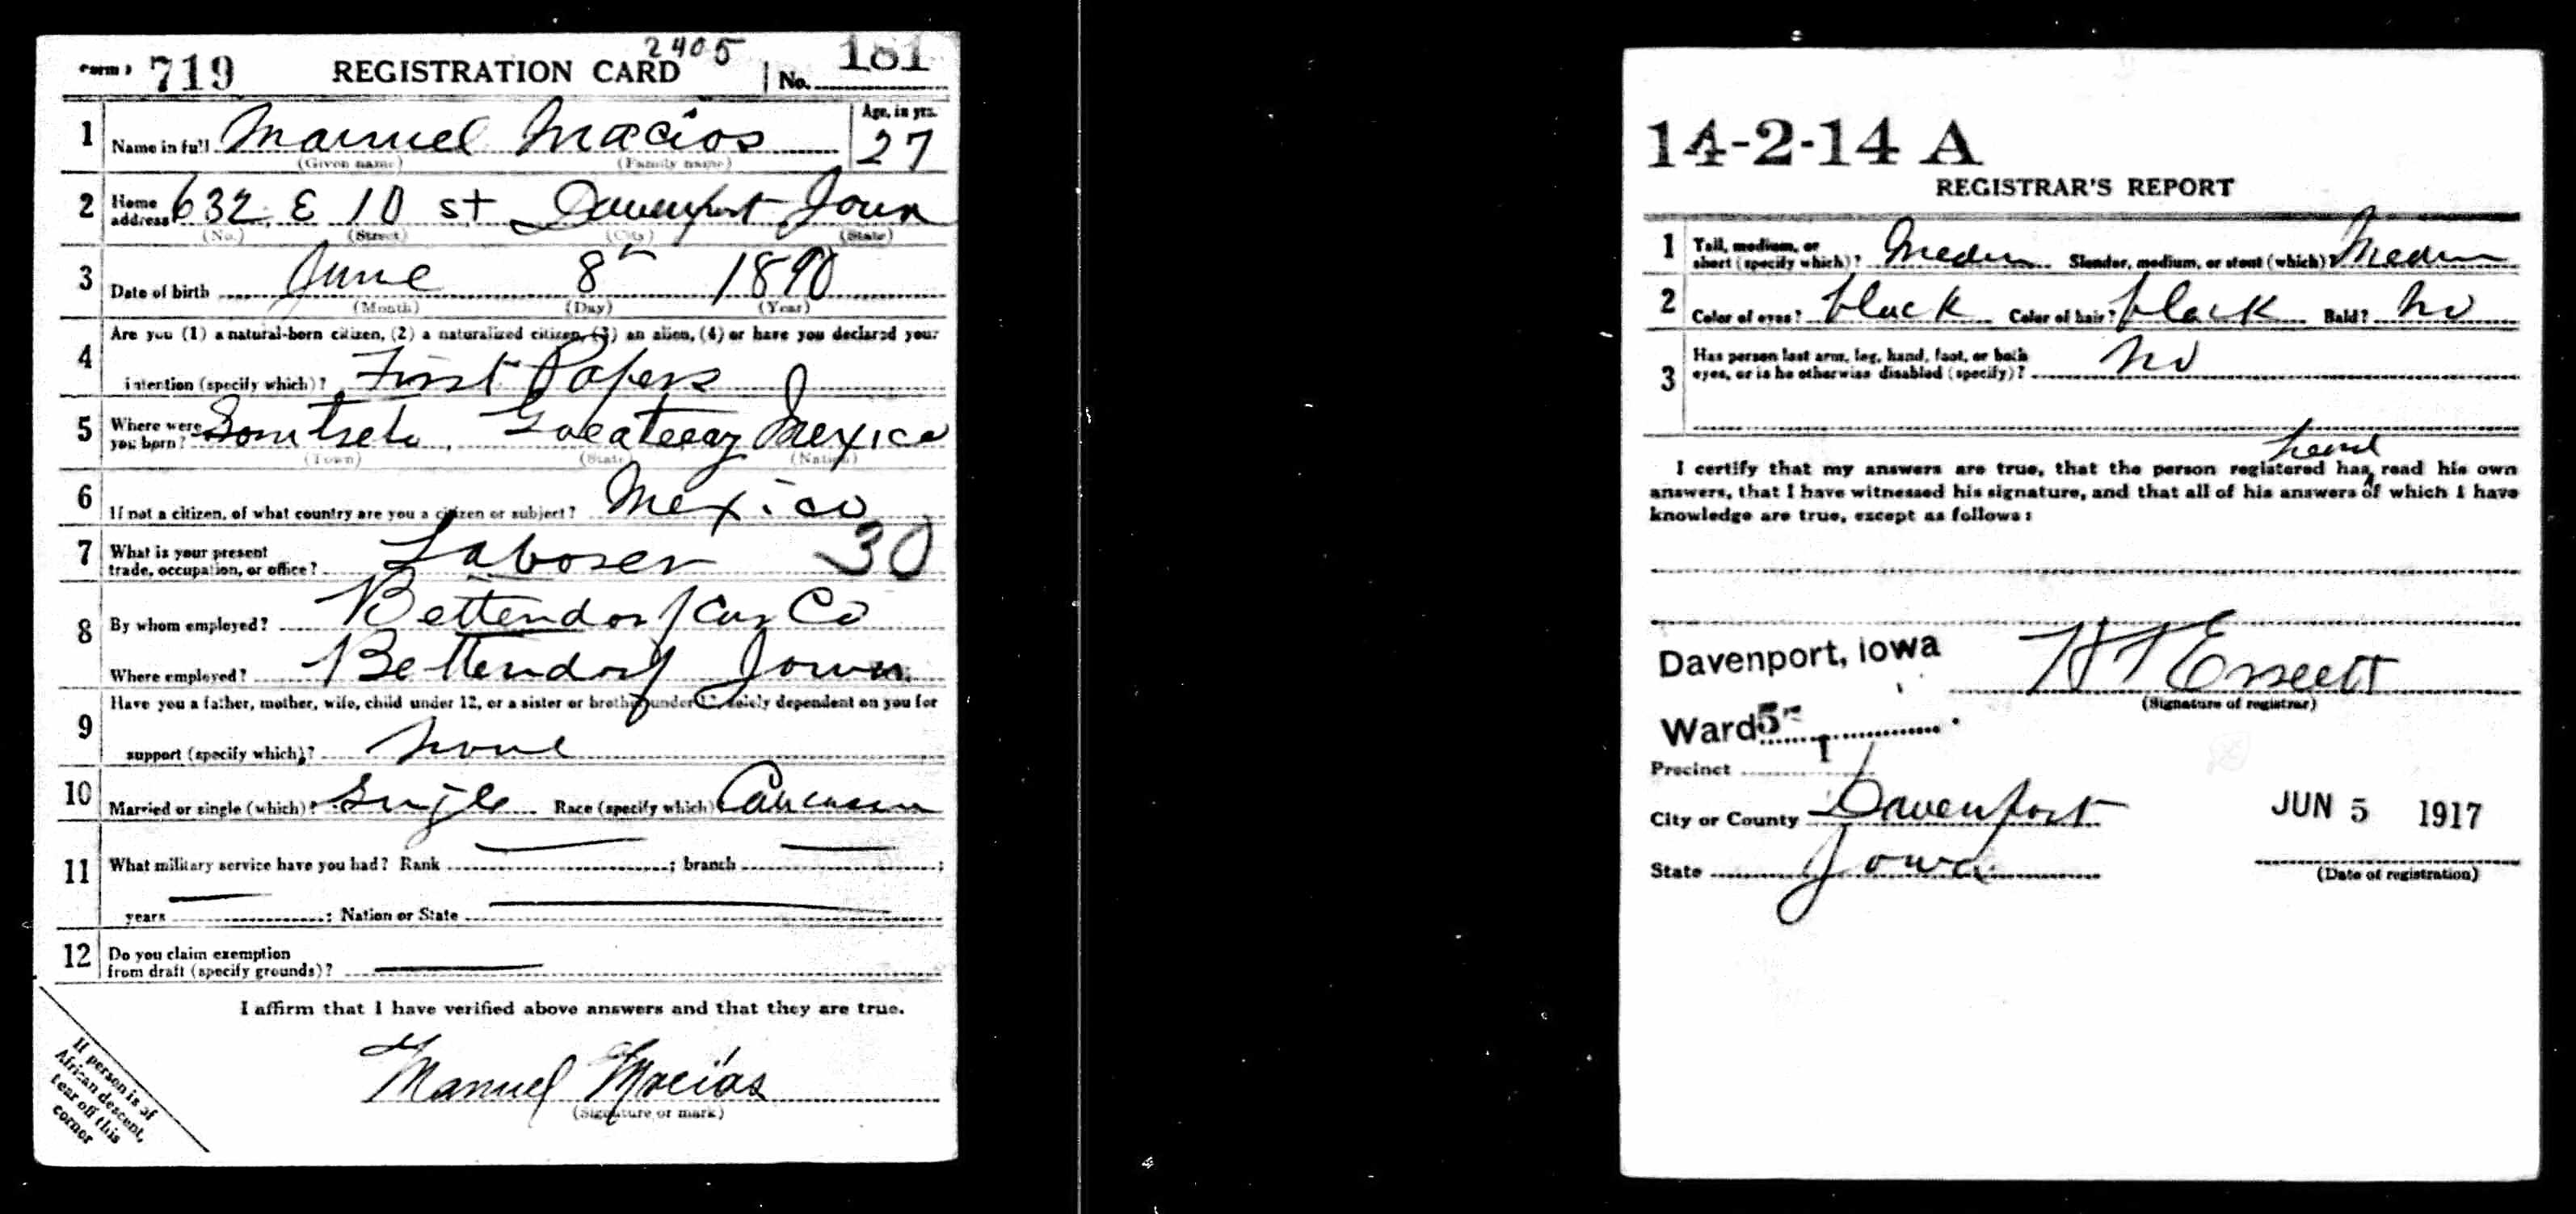 Form 1 719 REGISTRATION CARD 2405 No. 181
1 Name in full Manuel Macios Age, in yrs. 27
(Given name) (Family name)
2 Home address 632 E 10 st Davenport Iowa
(No.) (Street) (City) (State)
3 Date of birth June 8th 1890
(Month) (Day) (Year)
4 Are you (1) a natural-born citizen, (2) a naturalized citizen, (3) an alien, (4) or have you declared your
intention (specify which)? First Papers
5 Where were you born? Mexico
(Town) (State) (Nation)
6 If not a citizen, of what country are you a citizen or subject? Mexico
7 What is your present trade, occupation, or office? Laborer 30
8 By whom employed? Bettendorf Car Co
Where employed? Bettendorf Iowa
9 Have you a father, mother, wife, child under 12, or a sister or brother under 12, solely dependent on you for
support (specify which)? None
10 Married or single (which)? Single Race (specify which)? Caucasian
11 What military service have you had? Rank ; branch ;
years ; Nation or State
12 Do you claim exemption
from draft (specify grounds)?
I affirm that I have verified above answers and that they are true.
Manuel Macias
(Signature or mark)
If person is of
African descent,
tear off this
corner
14-2-14 A
REGISTRAR'S REPORT
1 Tall, medium, or short (specify which)? Medium Slender, medium, or stout (which)? Medium
2 Color of eyes? black Color of hair? black Bald? No
3 Has person lost arm, leg, hand, foot, or both
eyes, or is he otherwise disabled (specify)? No
heard
I certify that my answers are true, that the person registered has read his own
answers, that I have witnessed his signature, and that all of his answers of which I have
knowledge are true, except as follows:
Davenport, Iowa
(Signature of registrar)
Ward 5
Precinct 1
City or County Davenport
JUN 5 1917
State Iowa
(Date of registration)